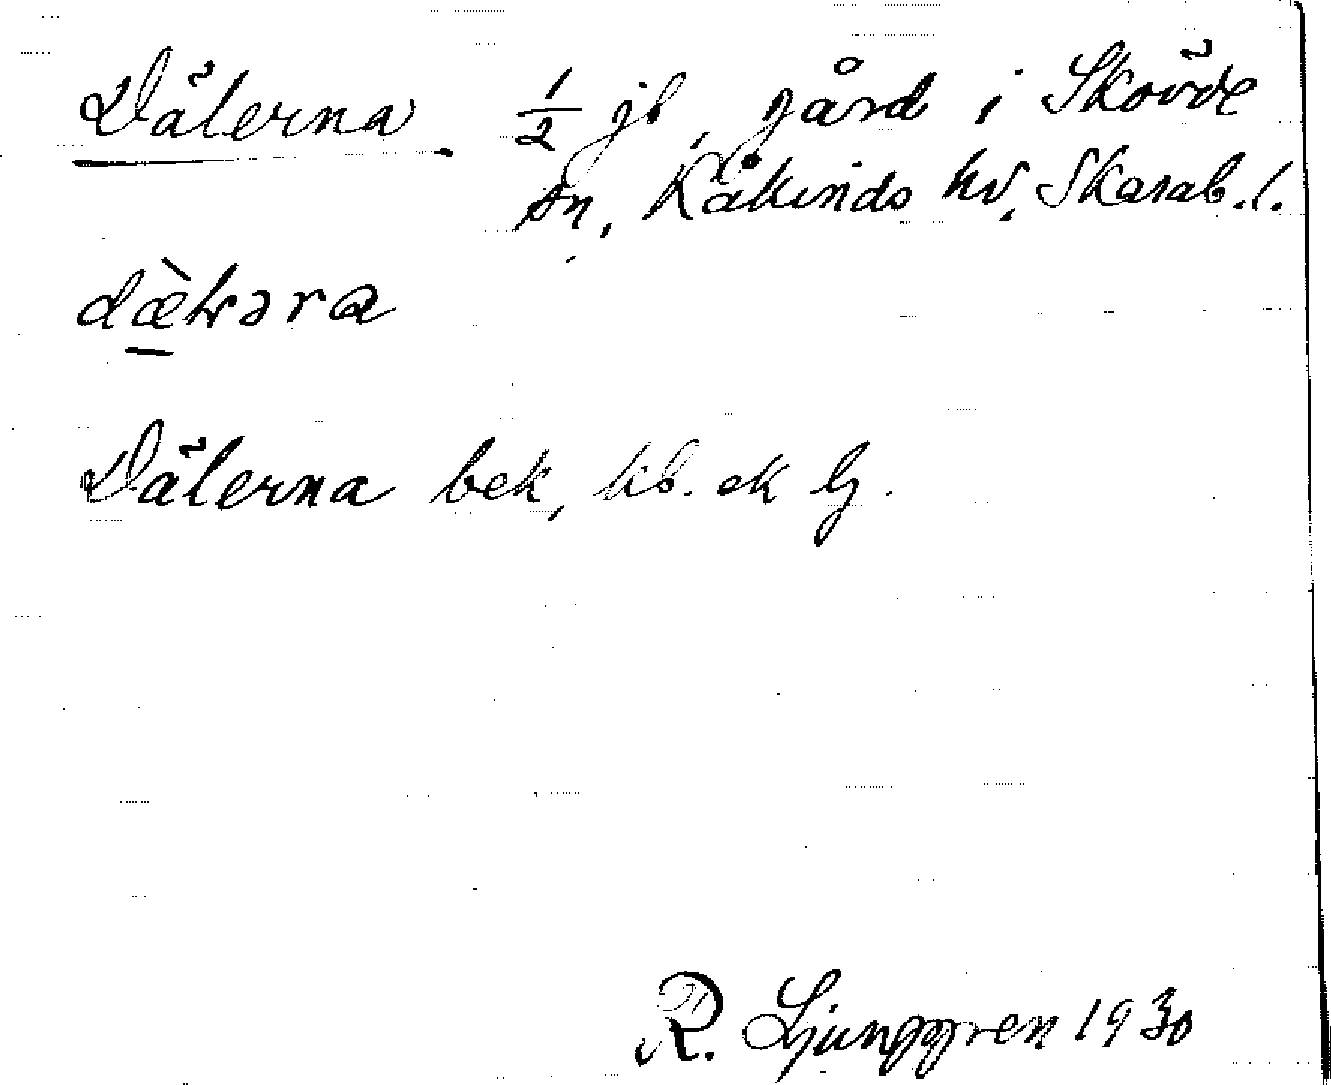 Dälerna ½ jb, gård i Skövde
sn, Kåkinds hd, Skarab.l.
dæ̀lɘra
Dälerna bek, kb. ek Lj.
R. Ljunggren 1930